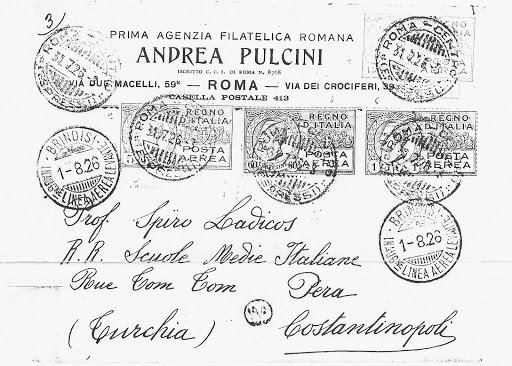 3)
PRIMA AGENZIA FILATELICA ROMANA
ANDREA PULCINI
ISCRITTO C. C. I. DI ROMA N. 8768
VIA DUE MACELLI, 59 — ROMA — VIA DEI CROCIFERI, 39
CASELLA POSTALE 413
ROMA CENTRO
31.7.26
ESPRESSI
REGNO D'ITALIA
ROMA
31.7.26
ESPRESSI
REGNO D'ITALIA
POSTA AEREA
REGNO D'ITALIA
POSTA AEREA
60
REGNO D'ITALIA
POSTA AEREA
1
ROMA
31.7.26
ESPRESSI
ROMA
ESPRESSI
ROMA
ESPRESSI
BRINDISI
1-8.26
LINEA AEREA
BRINDISI
1-8.26
LINEA AEREA
Prof. Spiro Ladicos
R. R. Scuole Medie Italiane
Rue Tom Tom Pera
(Turchia) Costantinopoli